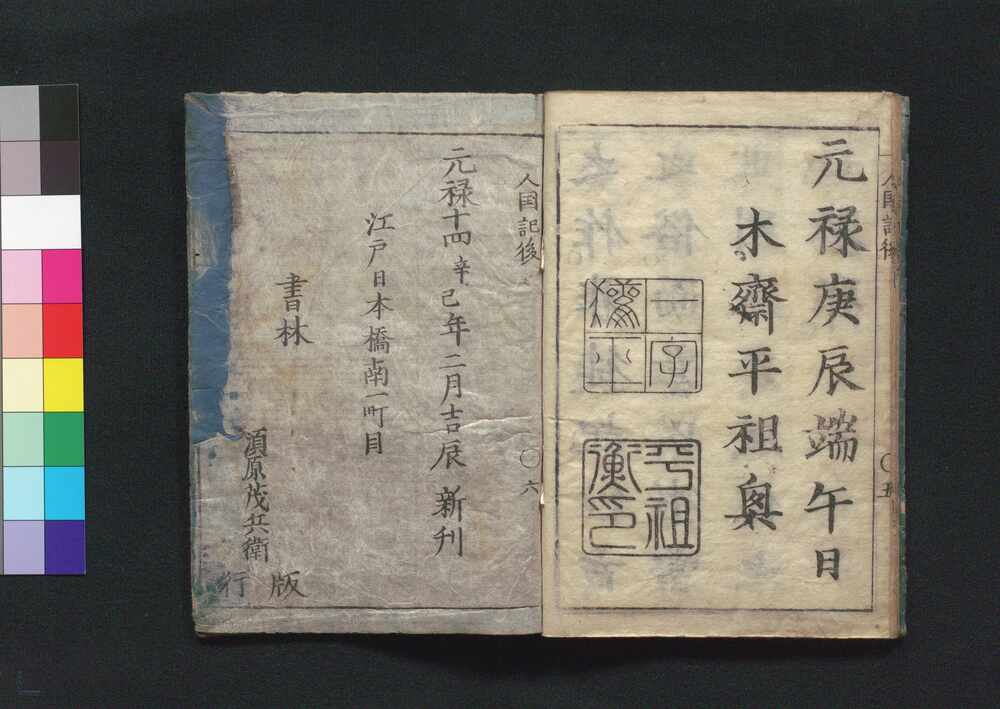 人国記後 〇五
元禄庚辰端午日
木齋平祖奥
一字
平祖
衡印
人国記後 〇六
元禄十四辛巳年二月吉辰 新刊
江戸日本橋南一町目
書林
須原茂兵衛
版行